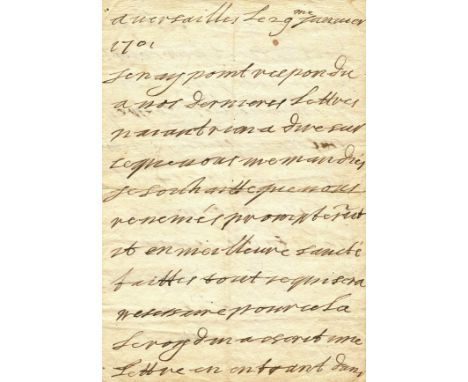 a versailles le 29me Janvier
1701
Je nay point respondu
a vos dernieres Lettres
naiant rien a dire sur
ce que vous me mandiés
Je souhaitte que vous
revenés promptemt
et en meilleure santé
faittes tout ce qui sera
necessaire pour cela
Le roy d'un a escrit une
Lettre en entrant dans